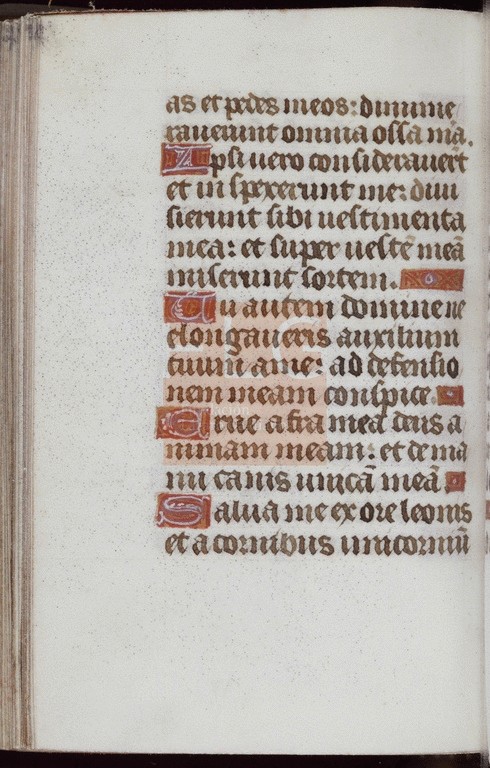 as et pedes meos: dinume
rauerunt omnia ossa mẽa.
Ipsi uero considerauer̃t
et in spexerunt me: diui
sierunt sibi uestimenta
mea: et super uestẽ meã
miserunt sortem.
Tu autem domine ne
elongaueris auxilium
tuum a me: ad defensio
nem meam conspice.
Erue a framea deus a
nimam meam: et de ma
nu canis unicã meã.
Salua me ex ore leonis
et a cornibus unicorniũ